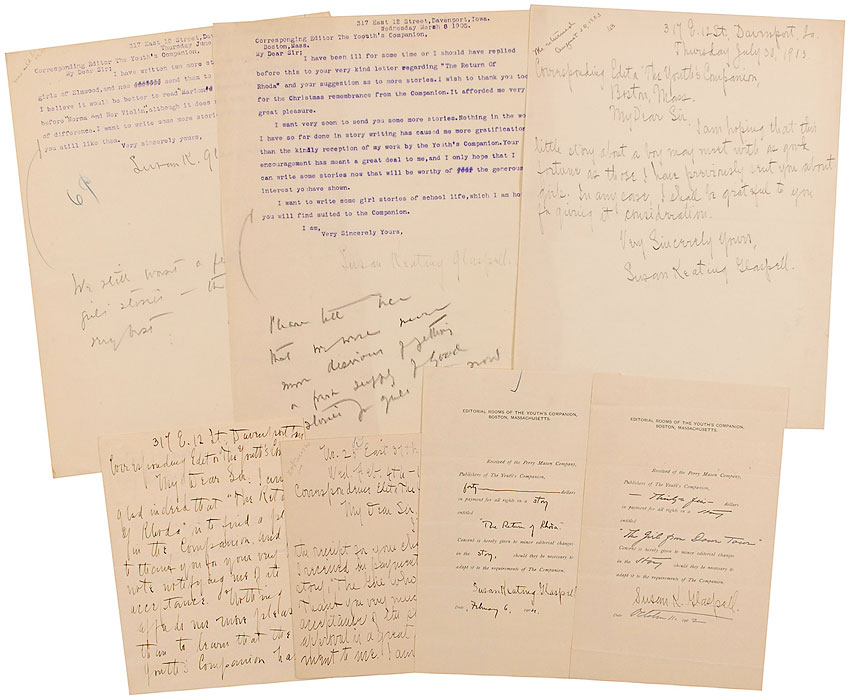 317 East 12 Street, Dav
Thursday June
Corresponding Editor The Youth's Companion,
My Dear Sir;
I have written two more st
girls of Elmwood, and now send them to
I believe it would be better to read "Marion's
before "Norma and Her Violin", although it does n
of difference. I want to write some more stories
you still like them.
Very sincerely yours,
Susan K. Gla
We still want a fe
girls' stories — th
my best
317 East 12 Street, Davenport, Iowa.
Wednesday March 8 1905.
Corresponging Editor The Yoyth's Companion,
Boston, Mass.
My Dear Sir;
I have been ill for some time or I should have replied
before this to your very kind letter regarding "The Return Of
Rhoda" and your suggestion as to more stories. I wish to thank you too
for the Christmas remembrance from the Companion. It afforded me very
great pleasure.
I want very soon to send you some more stories. Nothing in the wo
I have so far done in story writing has caused me more gratification
than the kindly reception of my work by the Youth's Companion. Your
encouragement has meant a great deal to me, and I only hope that I
can write some stories now that will be worthy of the generous
interest you have shown.
I want to write some girl stories of school life, which I am ho
you will find suited to the Companion.
I am,
Very Sincerely Yours,
Susan Keating Glaspell.
Please tell her
that we were never
more desirous of getting
a fresh supply of good
stories for girls now
August 1903
317 E. 12 St, Davenport, Ia.
Thursday July 30, 1903
Corresponding Editor "The Youth's Companion
Boston, Mass.
My Dear Sir,
I am hoping that this
little story about a boy may meet with as good
fortune as those I have previously sent you about
girls. In any case, I shall be grateful to you
for giving it consideration.
Very Sincerely Yours,
Susan Keating Glaspell.
317 E. 12 St, Davenport, Ia
Corresponding Editor The Youth's Co
My Dear Sir, I am
glad indeed that "The Retu
of Rhoda" is to find a pl
in the Companion, and
to thank you for your very
note notifying me of its
acceptance. Nothing
affords me more pleas
than to learn that the
Youth's Companion ha
No. 25 East 37th
Wed. Feb. 4th
Corresponding Editor The
My Dear Sir,
the receipt for your che
I received in payment
story, "The Girl Who
Thank you very muc
acceptance of the
approval is a great
ment to me. I am
EDITORIAL ROOMS OF THE YOUTH'S COMPANION,
BOSTON, MASSACHUSETTS.
Received of the Perry Mason Company,
Publishers of The Youth's Companion,
forty dollars
in payment for all rights in a story
entitled
"The Return of Rhoda"
Consent is hereby given to minor editorial changes
in the story, should they be necessary to
adapt it to the requirements of The Companion.
Susan Keating Glaspell
Date, February 6,
EDITORIAL ROOMS OF THE YOUTH'S COMPANION,
BOSTON, MASSACHUSETTS.
Received of the Perry Mason Company,
Publishers of The Youth's Companion,
— Thirty-five — dollars
in payment for all rights in a story
entitled
"The Girl from Down Town"
Consent is hereby given to minor editorial changes
in the story should they be necessary to
adapt it to the requirements of The Companion.
Susan K. Glaspell.
Date October 11,